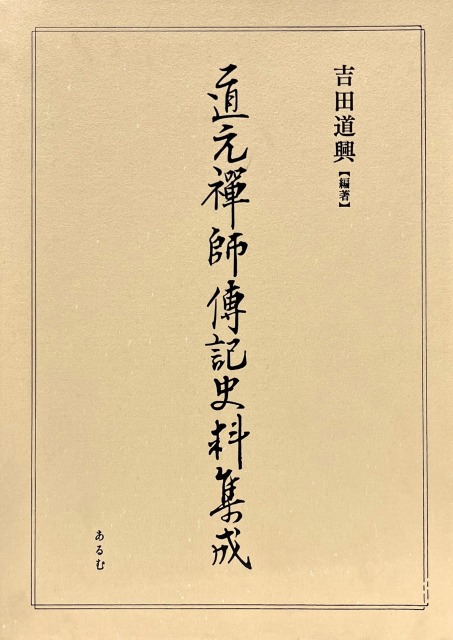 吉田道興【編著】
道元禪師傳記史料集成
あるむ